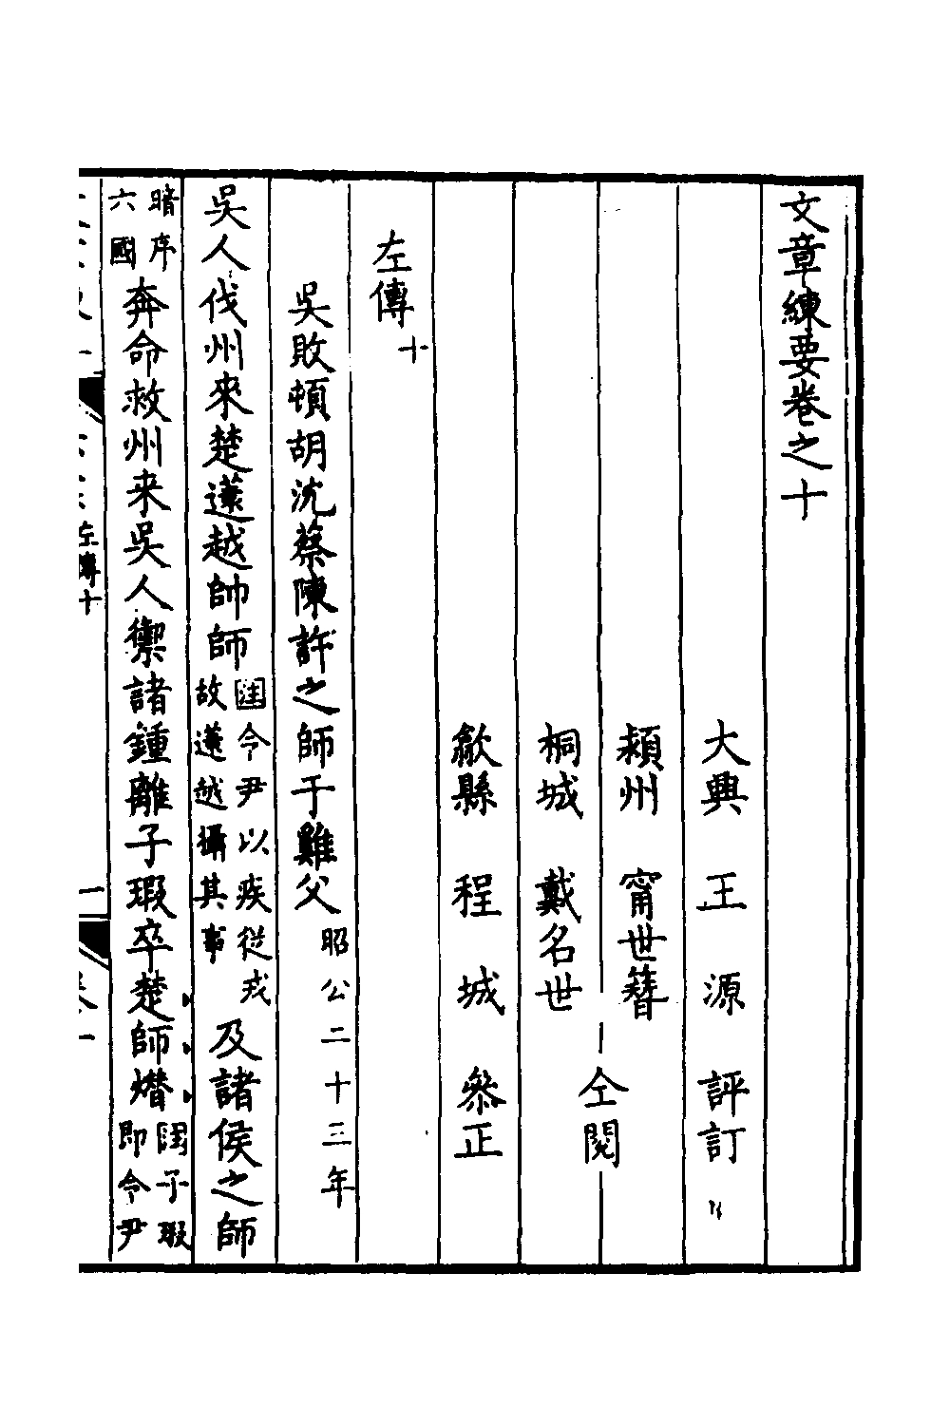 文章練要卷之十
大興　王　源　評訂
潁州　甯世簪
仝閱
桐城　戴名世
歙縣　程　城　叅正
左傳十
吳敗頓胡沈蔡陳許之師于雞父昭公二十三年
吳人伐州來楚薳越帥師注令尹以疾從戎故薳越攝其事及諸侯之師
暗序六國奔命救州来吳人禦諸鍾離子瑕卒楚師熸注子瑕即令尹
左傳十